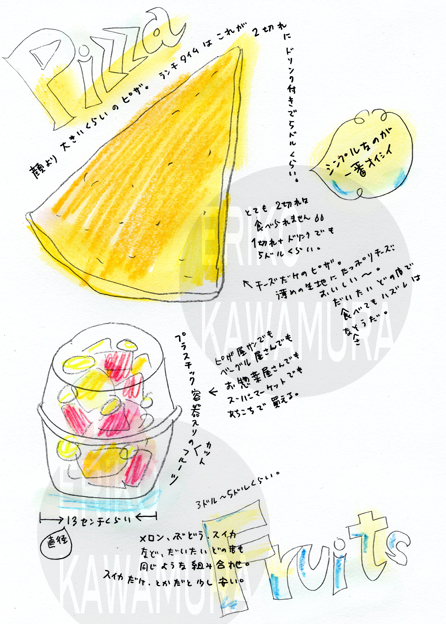 Pizza
顔より大きいくらいのピザ。ランチタイムはこれが2切れ
にドリンク付きで5ドルくらい。
シンプルなのが
一番オイシイ
とても2切れは
食べられません
1切れ+ドリンクでも
5ドルくらい。
チーズだけのピザ。
薄めの生地にたっぷりチーズ
おいしい〜。
だいたいどの店で
食べてもハズレは
なさそうだ。
ERIKO
KAWAMURA
プラスチック容器入りの
カットフルーツ
ピザ屋さんでも
ベーグル屋さんでも
お惣菜屋さんでも
スーパーマーケットでも
あちこちで買える。
13センチくらい
直径
3ドル〜5ドルくらい。
メロン、ぶどう、スイカ
など、だいたいどの店も
同じような組み合わせ。
スイカだけ、とかだと少し安い。
Fruits
KAWAMURA